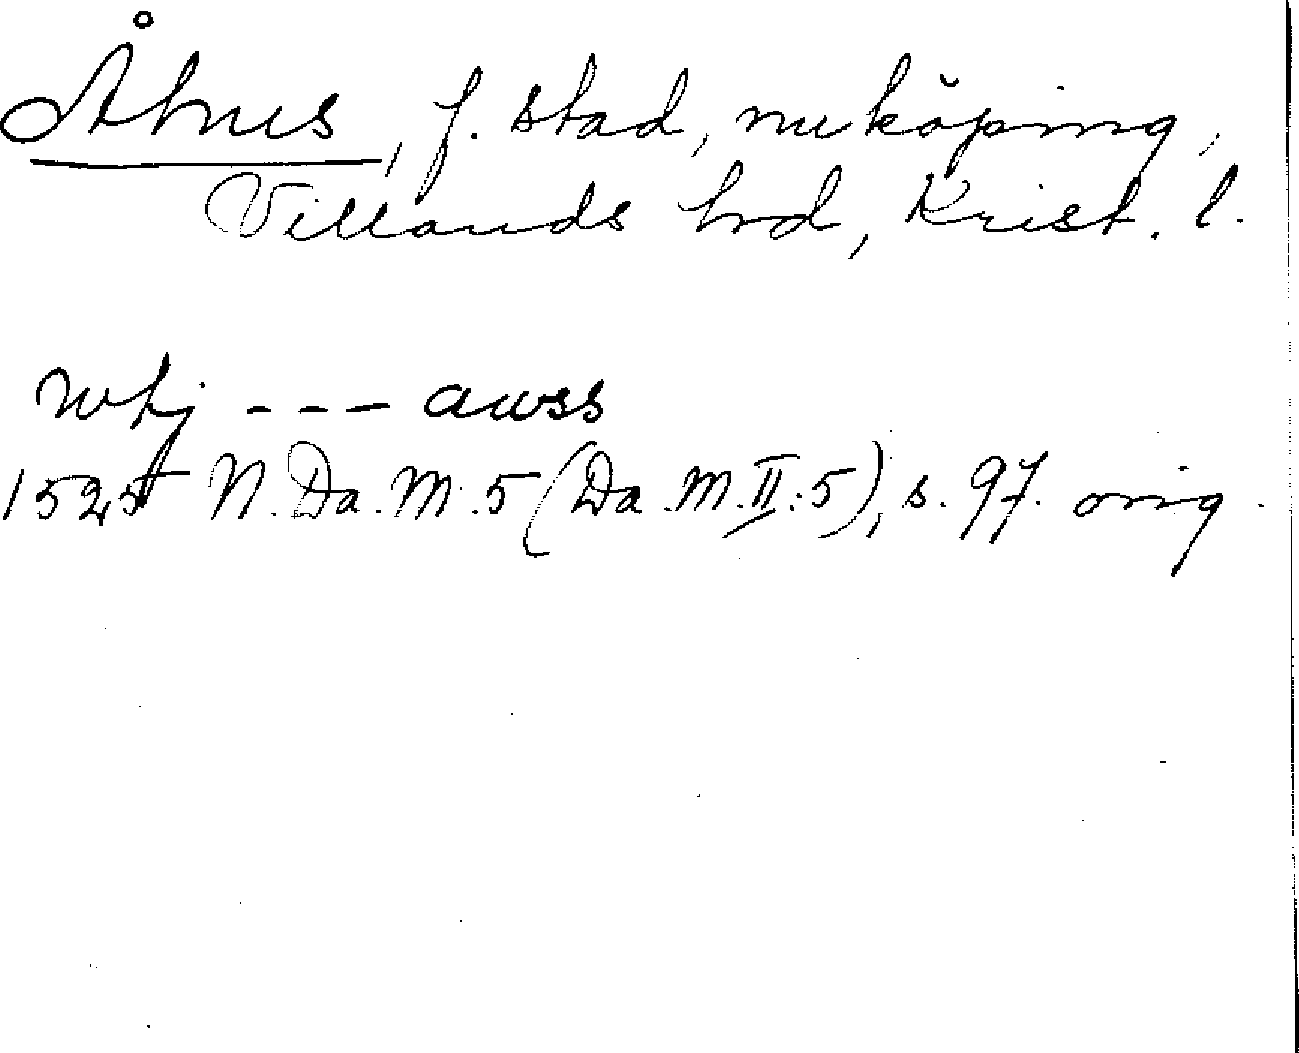 Åhus, f. stad, nu köping,
Villands hrd, Krist. l.
whj --- awss
1525 N. Da. M. 5 (Da. M. II: 5), s. 97. orig.